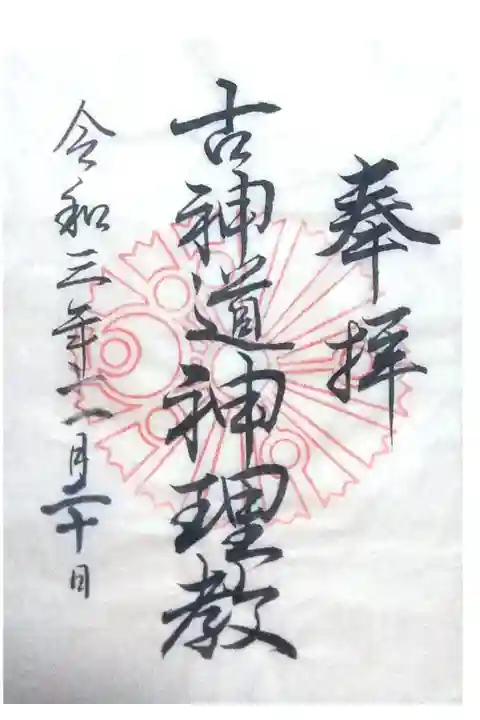 奉拝
古神道神理教
令和三年十一月二十日